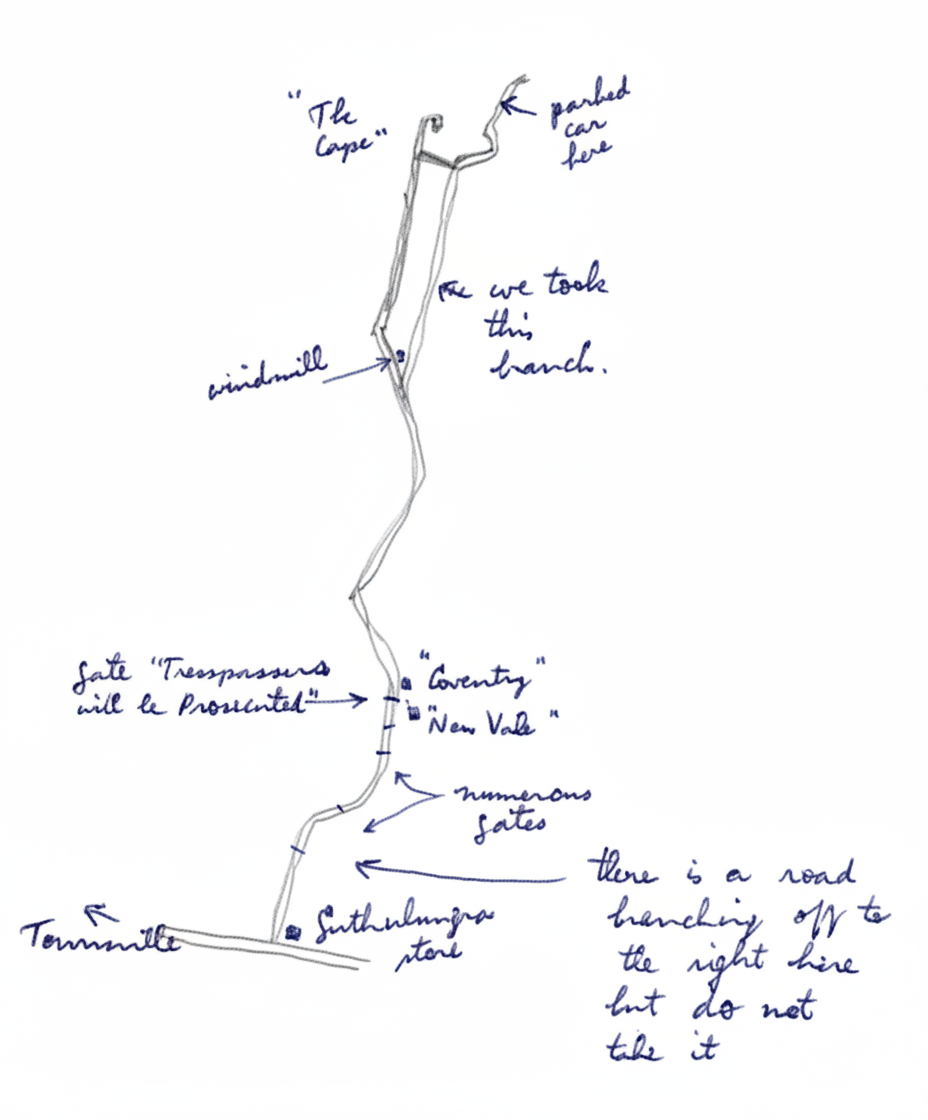 "The
Cape"
parked
car
here
we took
this
branch.
windmill
gate "Tresspassers
will be Prosecuted"
"Coventry"
"New Vale"
numerous
gates
there is a road
branching off to
the right here
but do not
take it
Townsville
Guthulungra
store